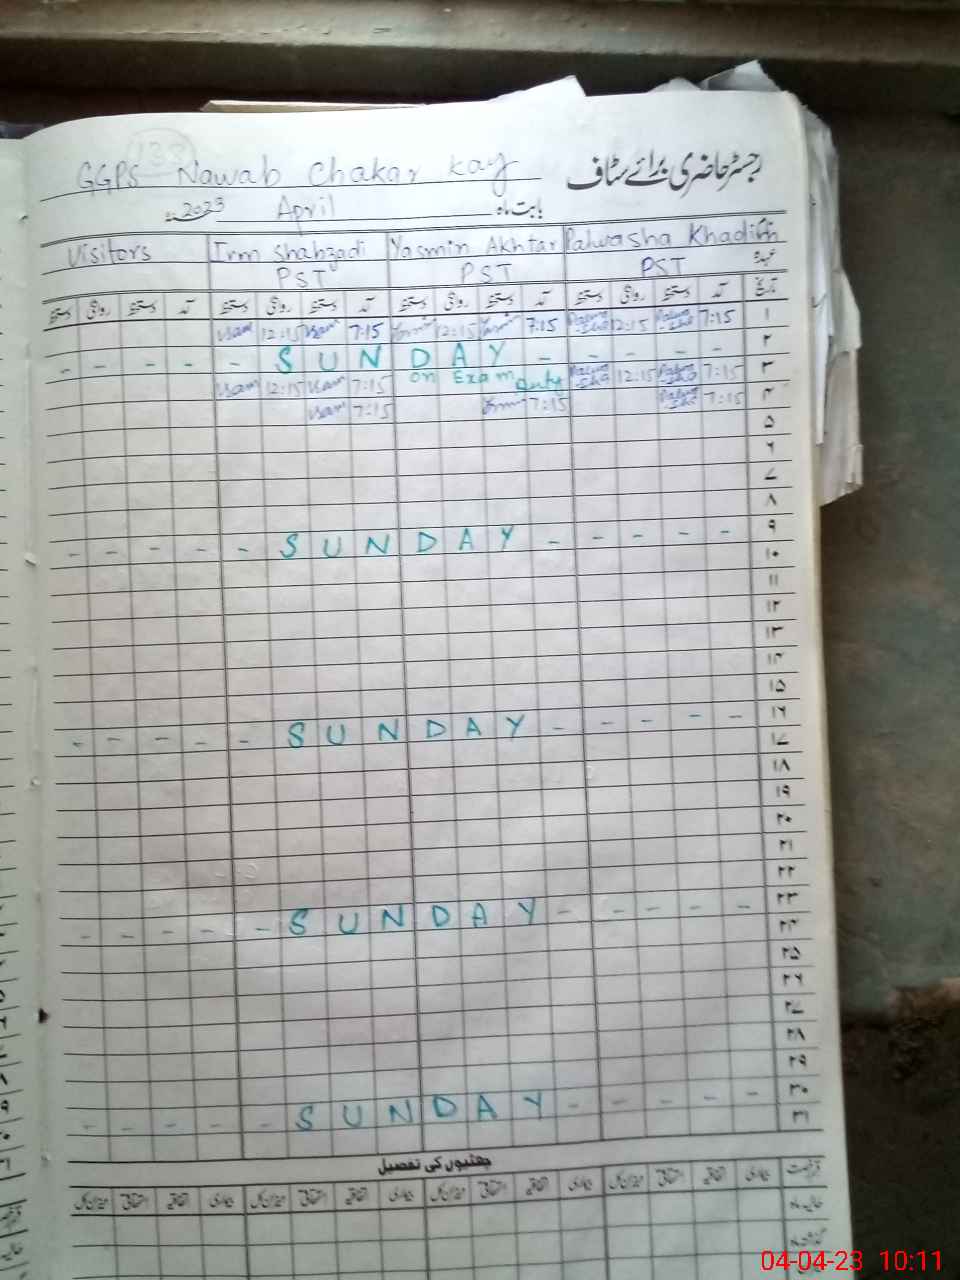 133
GGPS Nawab Chakar Kay رجسٹر حاضری برائے سٹاف
2023 April بابت ماہ
Visitors Irm Shahzadi Yasmin Akhtar Palwasha Khadim نام
PST PST PST عہدہ
دستخط روانگی دستخط آمد دستخط روانگی دستخط آمد دستخط روانگی دستخط آمد دستخط روانگی دستخط آمد تاریخ
12:15 7:15 12:15 7:15 Palwa-sha 12:15 Palwa-sha 7:15 ۱
- - - - - S U N D A Y - - - - - ۲
12:15 7:15 on Exam duty Palwa-sha 12:15 Palwa-sha 7:15 ۳
7:15 7:15 Palwa-sha 7:15 ۴
۵
۶
۷
۸
- - - - - S U N D A Y - - - - - ۹
۱۰
۱۱
۱۲
۱۳
۱۴
۱۵
- - - - - S U N D A Y - - - - - ۱۶
۱۷
۱۸
۱۹
۲۰
۲۱
۲۲
- - - - - S U N D A Y - - - - - ۲۳
۲۴
۲۵
۲۶
۲۷
۲۸
۲۹
- - - - - S U N D A Y - - - - - ۳۰
۳۱
چھٹیوں کی تفصیل
میزان کل استحقاقی اتفاقیہ بیماری میزان کل استحقاقی اتفاقیہ بیماری میزان کل استحقاقی اتفاقیہ بیماری قسم رخصت
حالیہ ماہ
04-04-23 10:11